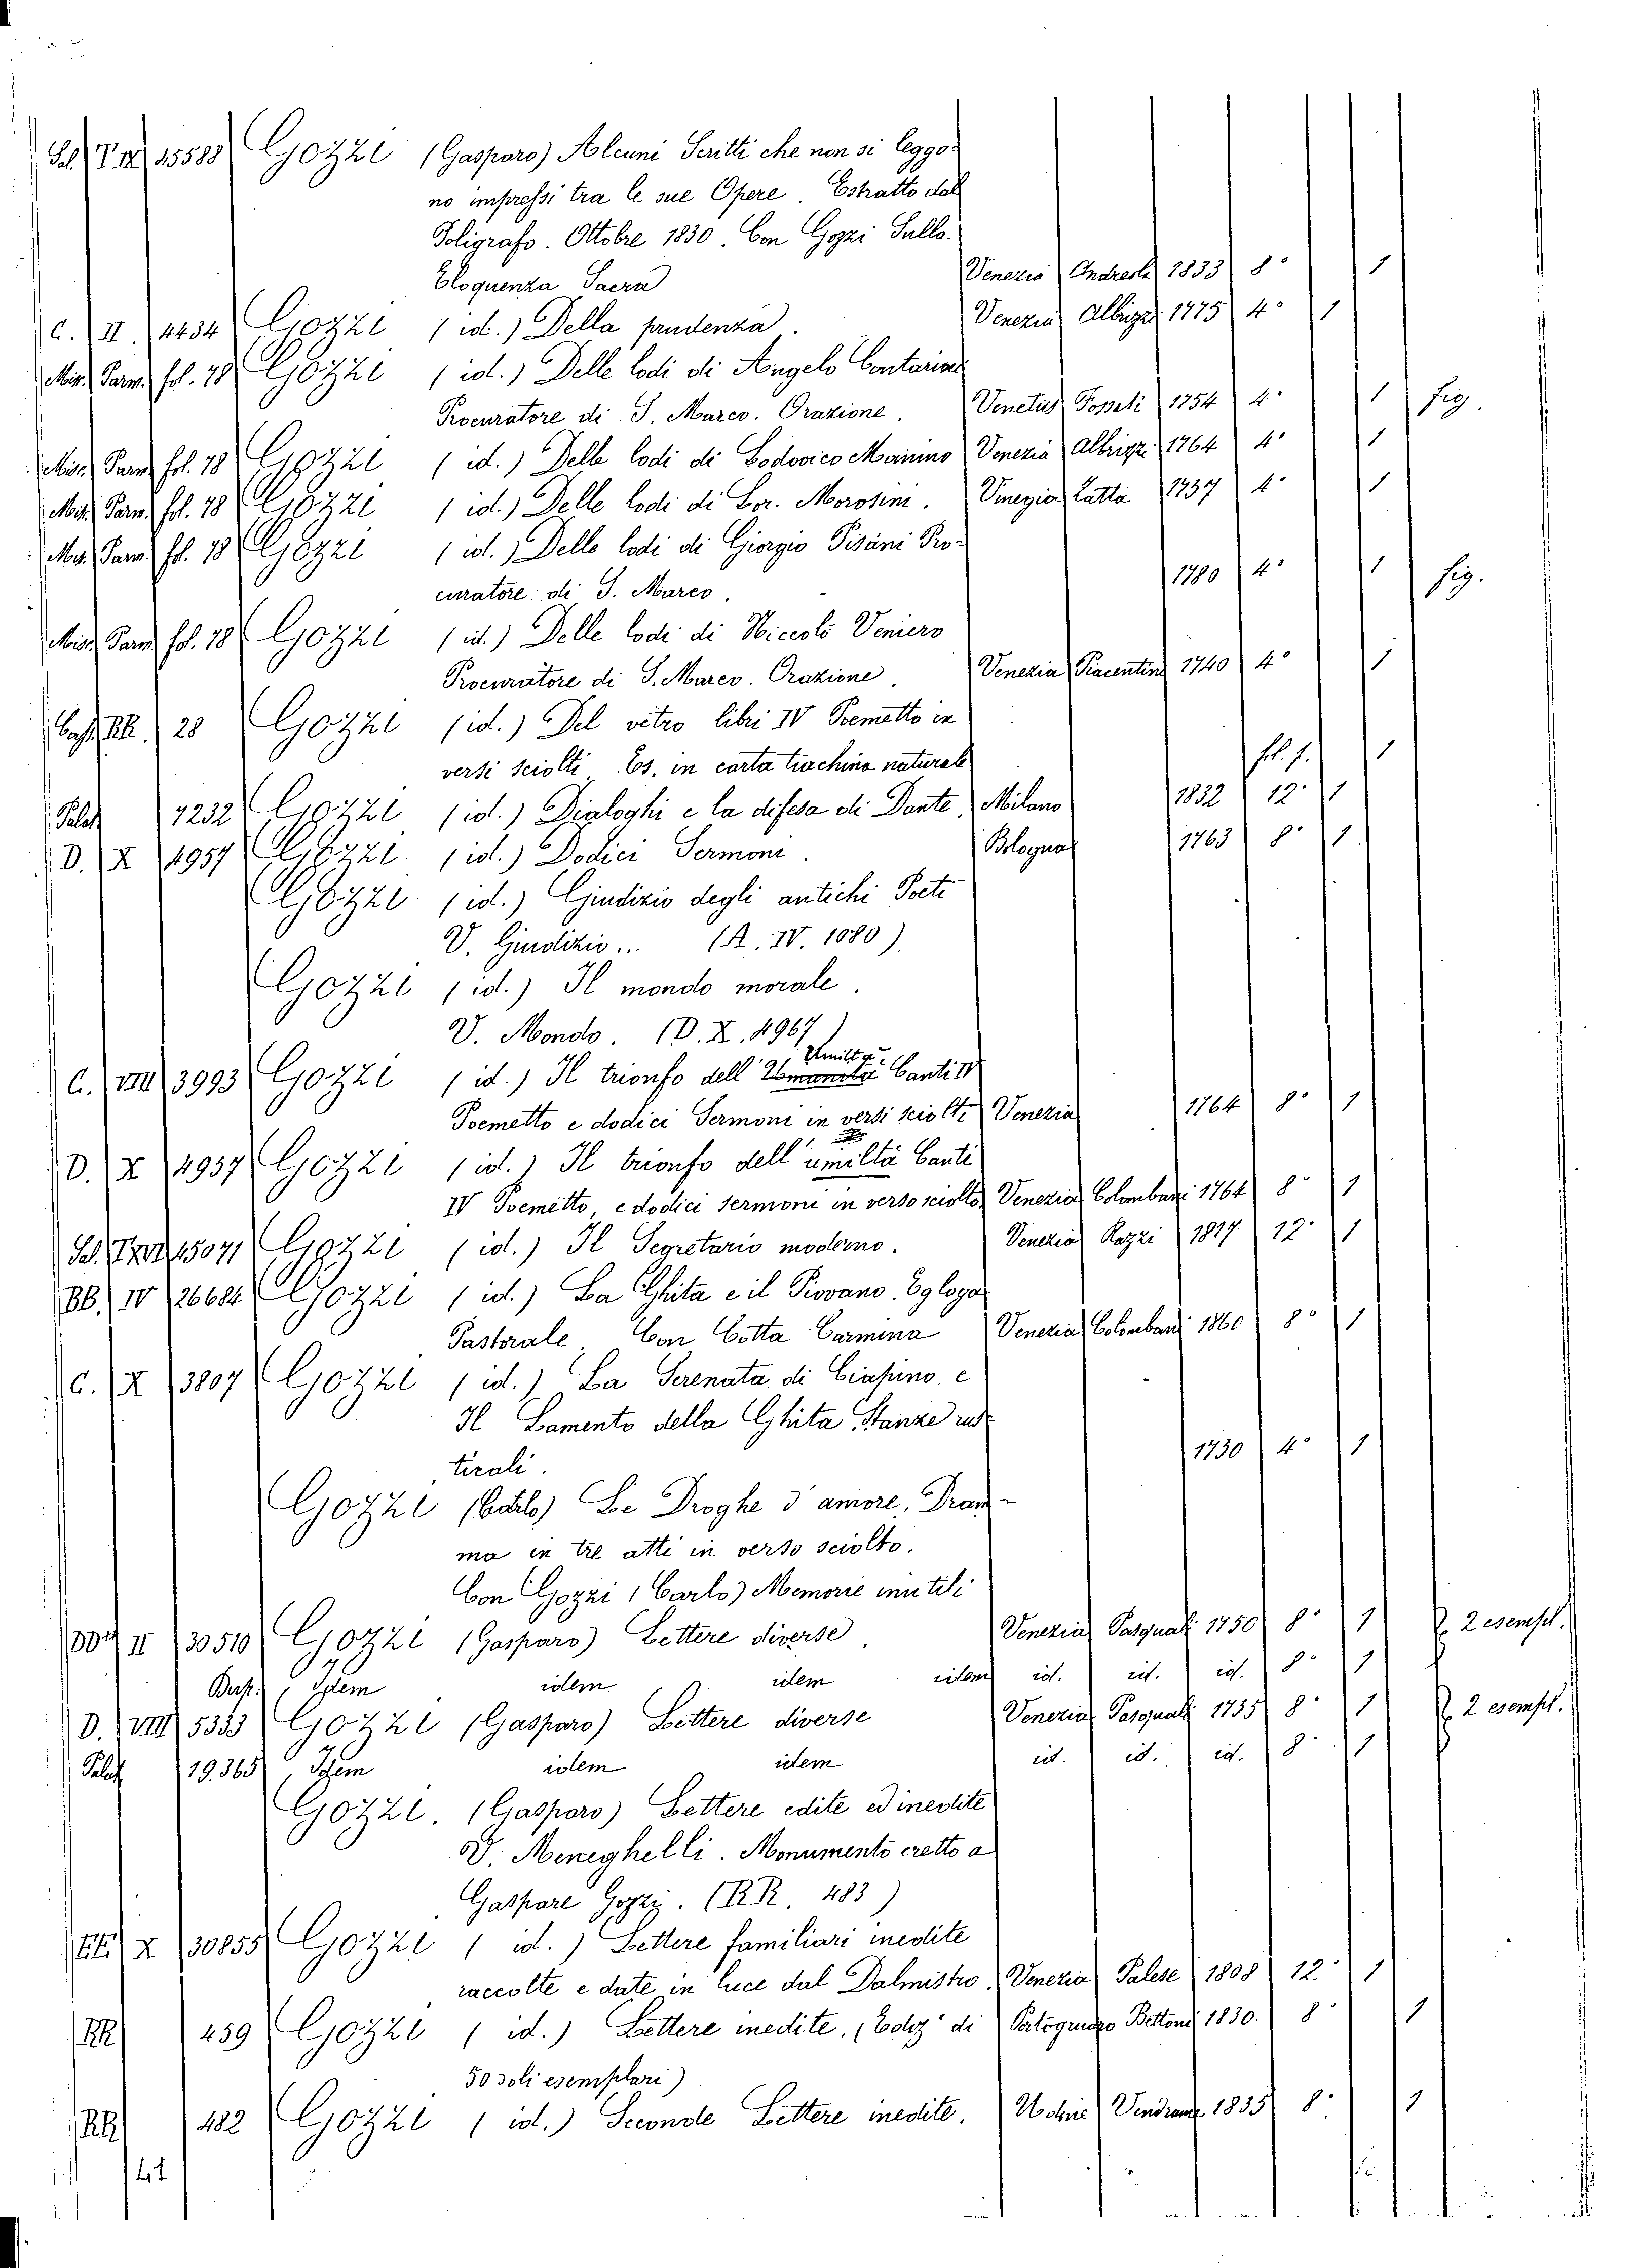 Sal. 15588 Gozzi (Gasparo) Alcuni Scritti che non si leggo-
no impressi tra le sue Opere. Estratto dal
Poligrafo. Ottobre 1830. Con Gozzi Sulla
Eloquenza Sacra Venezia Andreola 1833 8° 1
C. II. 4434 Gozzi (id.) Della prudenza. Venezia Albrizzi 1775 4° 1
Misc. Parm. fol. 78 Gozzi (id.) Delle lodi di Angelo Contarini
Procuratore di S. Marco. Orazione. Venetiis 1754 4° 1 fig.
Misc. Parm. fol. 78 Gozzi (id.) Delle lodi di Lodovico Manino Venezia Albrizzi 1764 4° 1
Misc. Parm. fol. 78 Gozzi (id.) Delle lodi di Lor. Morosini. Vinegia 1757 4° 1
Misc. Parm. fol. 78 Gozzi (id.) Delle lodi di Giorgio Pisani Pro-
curatore di S. Marco. 1780 4° 1 fig.
Misc. Parm. fol. 78 Gozzi (id.) Delle lodi di Niccolò Veniero
Procuratore di S. Marco. Orazione. Venezia Piacentini 1740 4° 1
28 Gozzi (id.) Del vetro libri IV Poemetto in
versi sciolti. Es. in carta turchina naturale 1
Palat. 7232 Gozzi (id.) Dialoghi e la difesa di Dante, Milano 1832 12° 1
D. X 4957 Gozzi (id.) Dodici Sermoni. Bologna 1763 8° 1
Gozzi (id.) Giudizio degli antichi Poeti
V. Giudizio... (A. IV. 1080)
Gozzi (id.) Il mondo morale.
V. Mondo. (D. X. 4967)
Umiltà
C. VIII 3993 Gozzi (id.) Il trionfo dell'Umanità Canti IV
Poemetto e dodici Sermoni in versi sciolti Venezia 1764 8° 1
D. X 4957 Gozzi (id.) Il trionfo dell'umiltà Canti
IV Poemetto, e dodici sermoni in verso sciolto Venezia Colombani 1764 8° 1
Sal. 15071 Gozzi (id.) Il Segretario moderno. Venezia Rozzi 1817 12° 1
BB. IV 26684 Gozzi (id.) La Ghita e il Piovano. Egloga
Pastorale. Con Cotta Carmina Venezia Colombani 1760 8° 1
C. X 3807 Gozzi (id.) La Serenata di Ciapino e
Il Lamento della Ghita Stanze rus
ticali. 1730 4° 1
Gozzi (Carlo) Le Droghe d'amore, Dram-
ma in tre atti in verso sciolto.
Con Gozzi (Carlo) Memorie inutili
II 30510 Gozzi (Gasparo) Lettere diverse. Venezia Pasquali 1750 8° 1 2 esempl.
Dup. Idem idem idem idem id. id. id. 8° 1
D. VIII 5333 Gozzi (Gasparo) Lettere diverse Venezia Pasquali 1755 8° 1 2 esempl.
Palat. 19.365 Idem idem idem id. id. id. 8° 1
Gozzi. (Gasparo) Lettere edite ed inedite
V. Meneghelli. Monumento eretto a
Gaspare Gozzi. (RR. 483)
X 30855 Gozzi (id.) Lettere familiari inedite
raccolte e date in luce dal Dalmistro. Venezia Palese 1808 12° 1
RR 459 Gozzi (id.) Lettere inedite. (Ediz.e di Portogruaro Bettoni 1830. 8° 1
50 soli esemplari).
RR 482 Gozzi (id.) Seconde Lettere inedite. Udine Vendrame 1835 8° 1
41